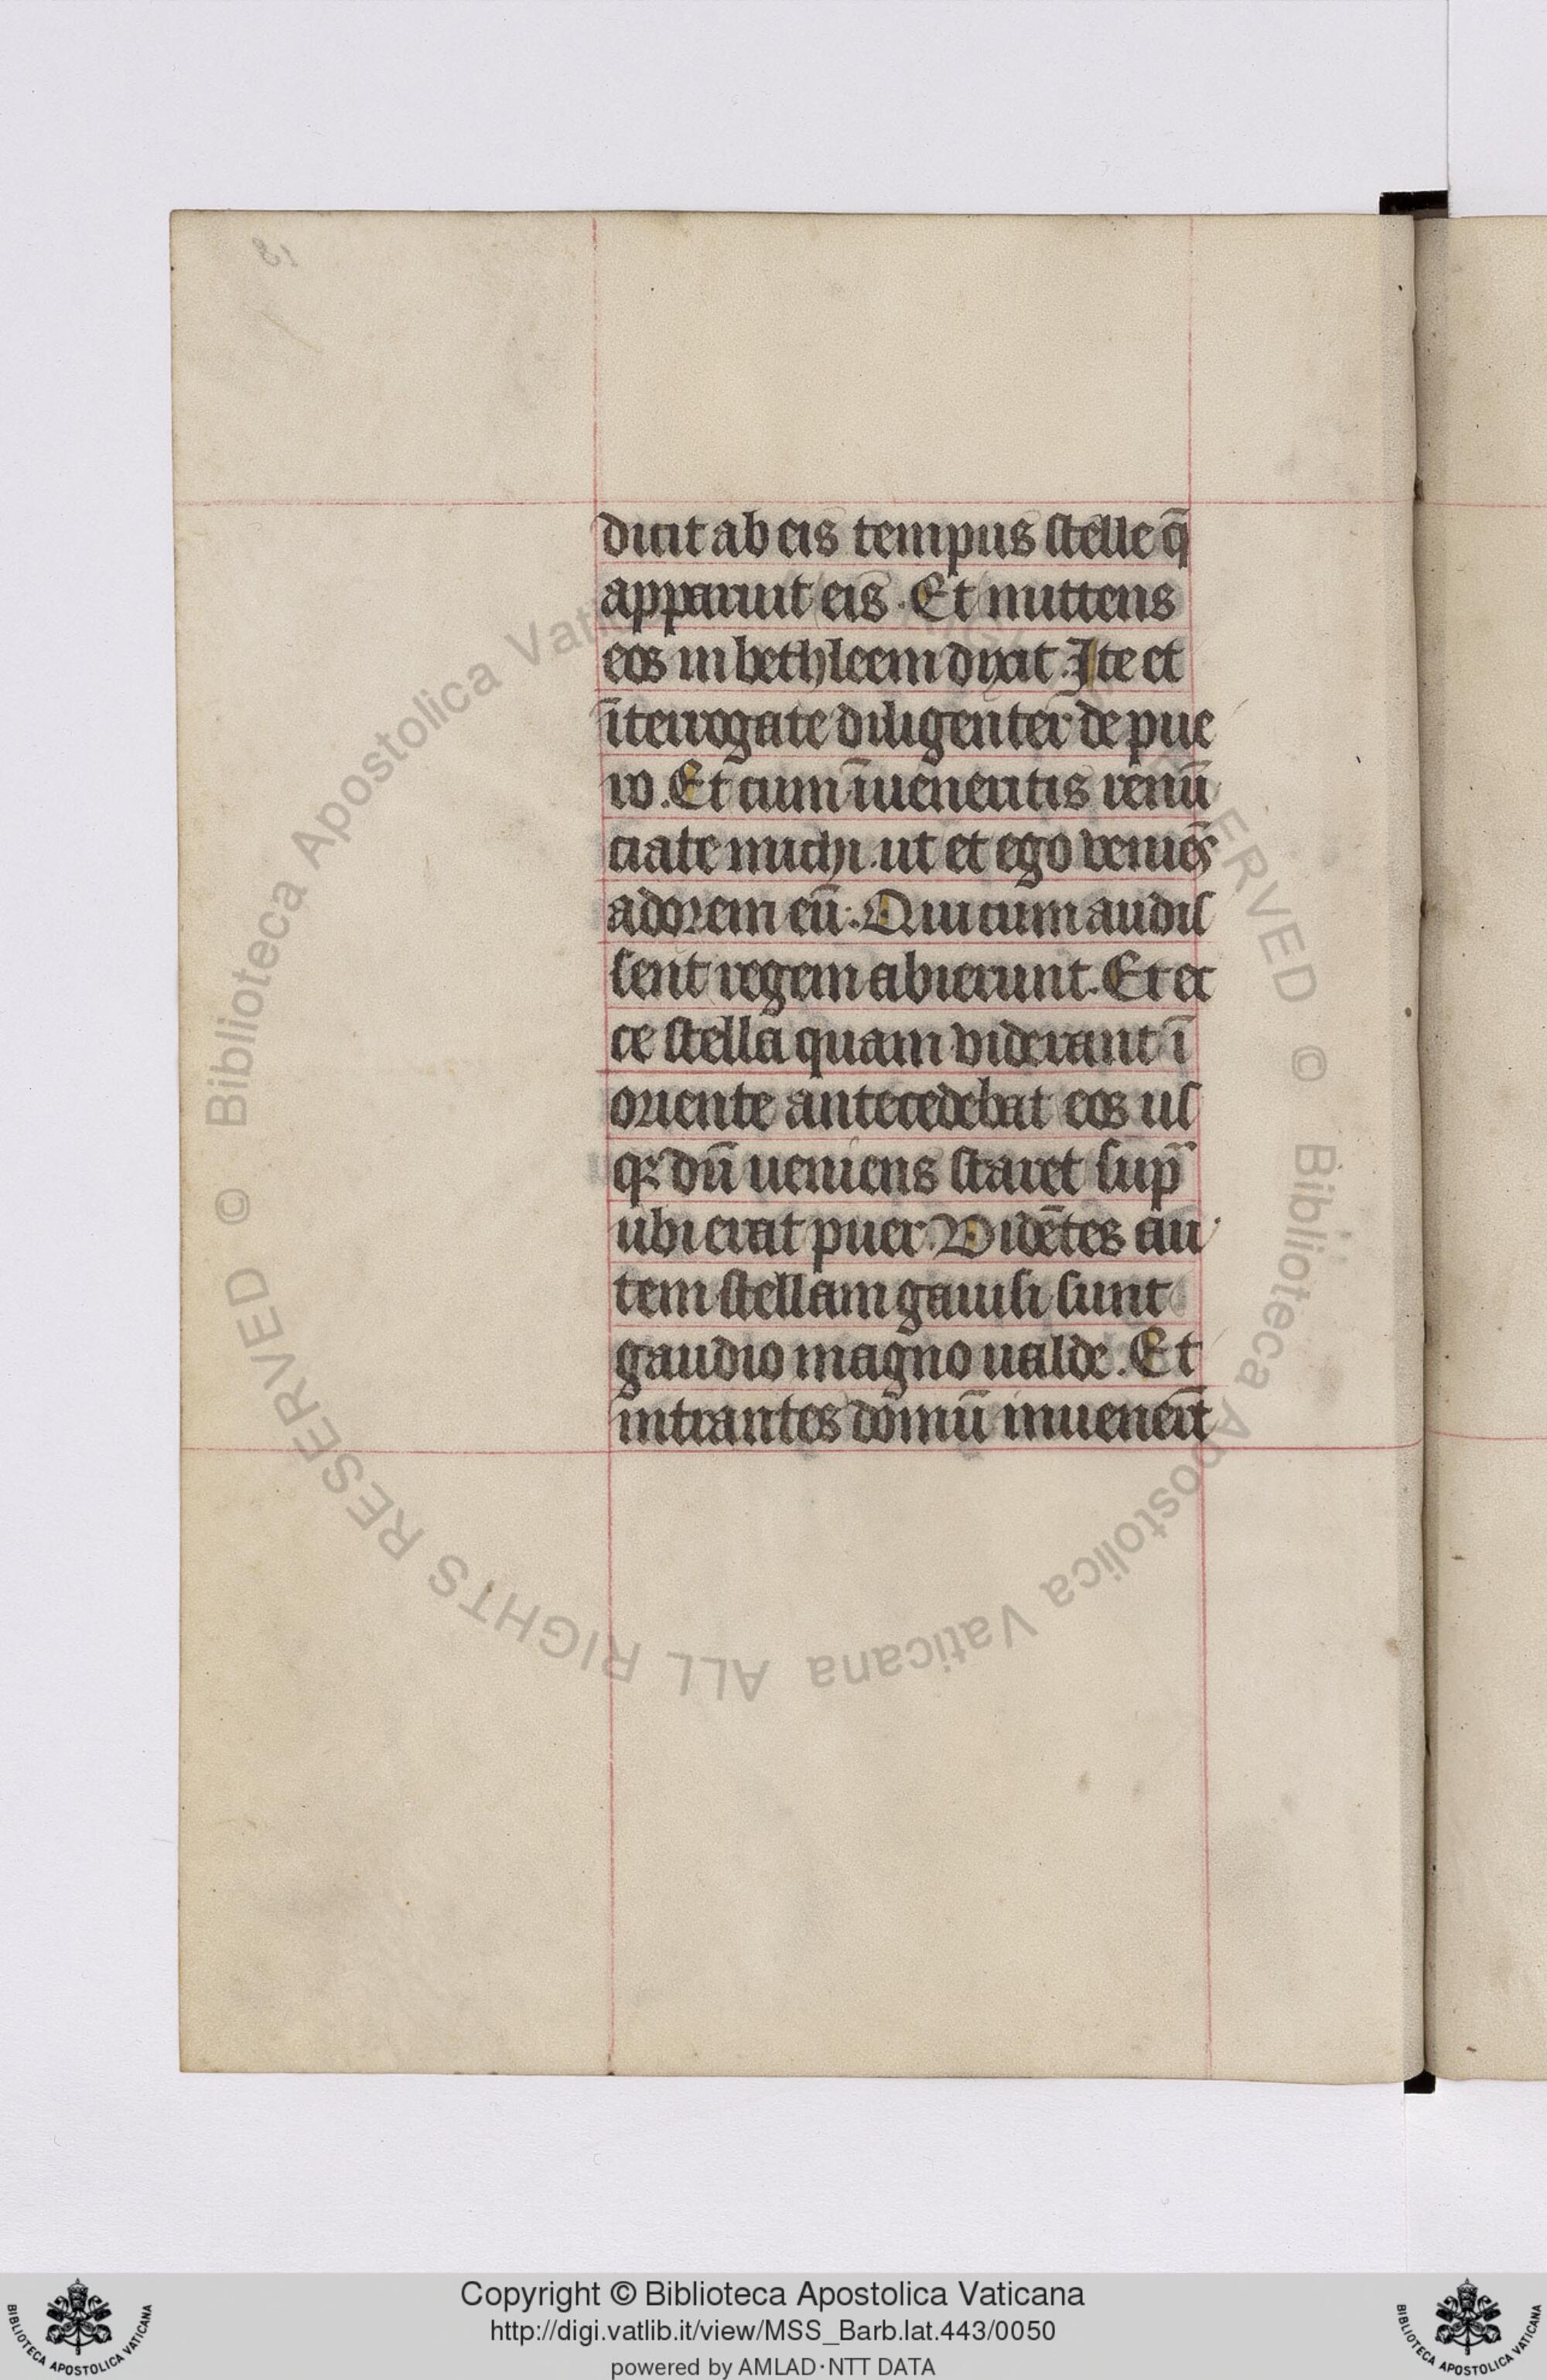 dicit ab eis tempus stelle q̄
apparuit eis. Et mittens
eos in bethleem dixit. Ite et
īterrogate diligenter de pue
ro. Et cum īueneritis renū
ciate michi. ut et ego veniēs
adorem eū. Qui cum audis
sent regem abierunt. Et ec
ce stella quam viderant ī
oriente antecedebat eos us
qꝫ dū ueniens staret sup̄
ubi erat puer. Vidētes au
tem stellam gauisi sunt
gaudio magno ualde. Et
intrantes domū inuenerūt
© Biblioteca Apostolica Vaticana ALL RIGHTS RESERVED © Biblioteca Apostolica Vaticana ALL RIGHTS RESERVED
Copyright © Biblioteca Apostolica Vaticana
http://digi.vatlib.it/view/MSS_Barb.lat.443/0050
powered by AMLAD·NTT DATA
BIBLIOTECA APOSTOLICA VATICANA
BIBLIOTECA APOSTOLICA VATICANA